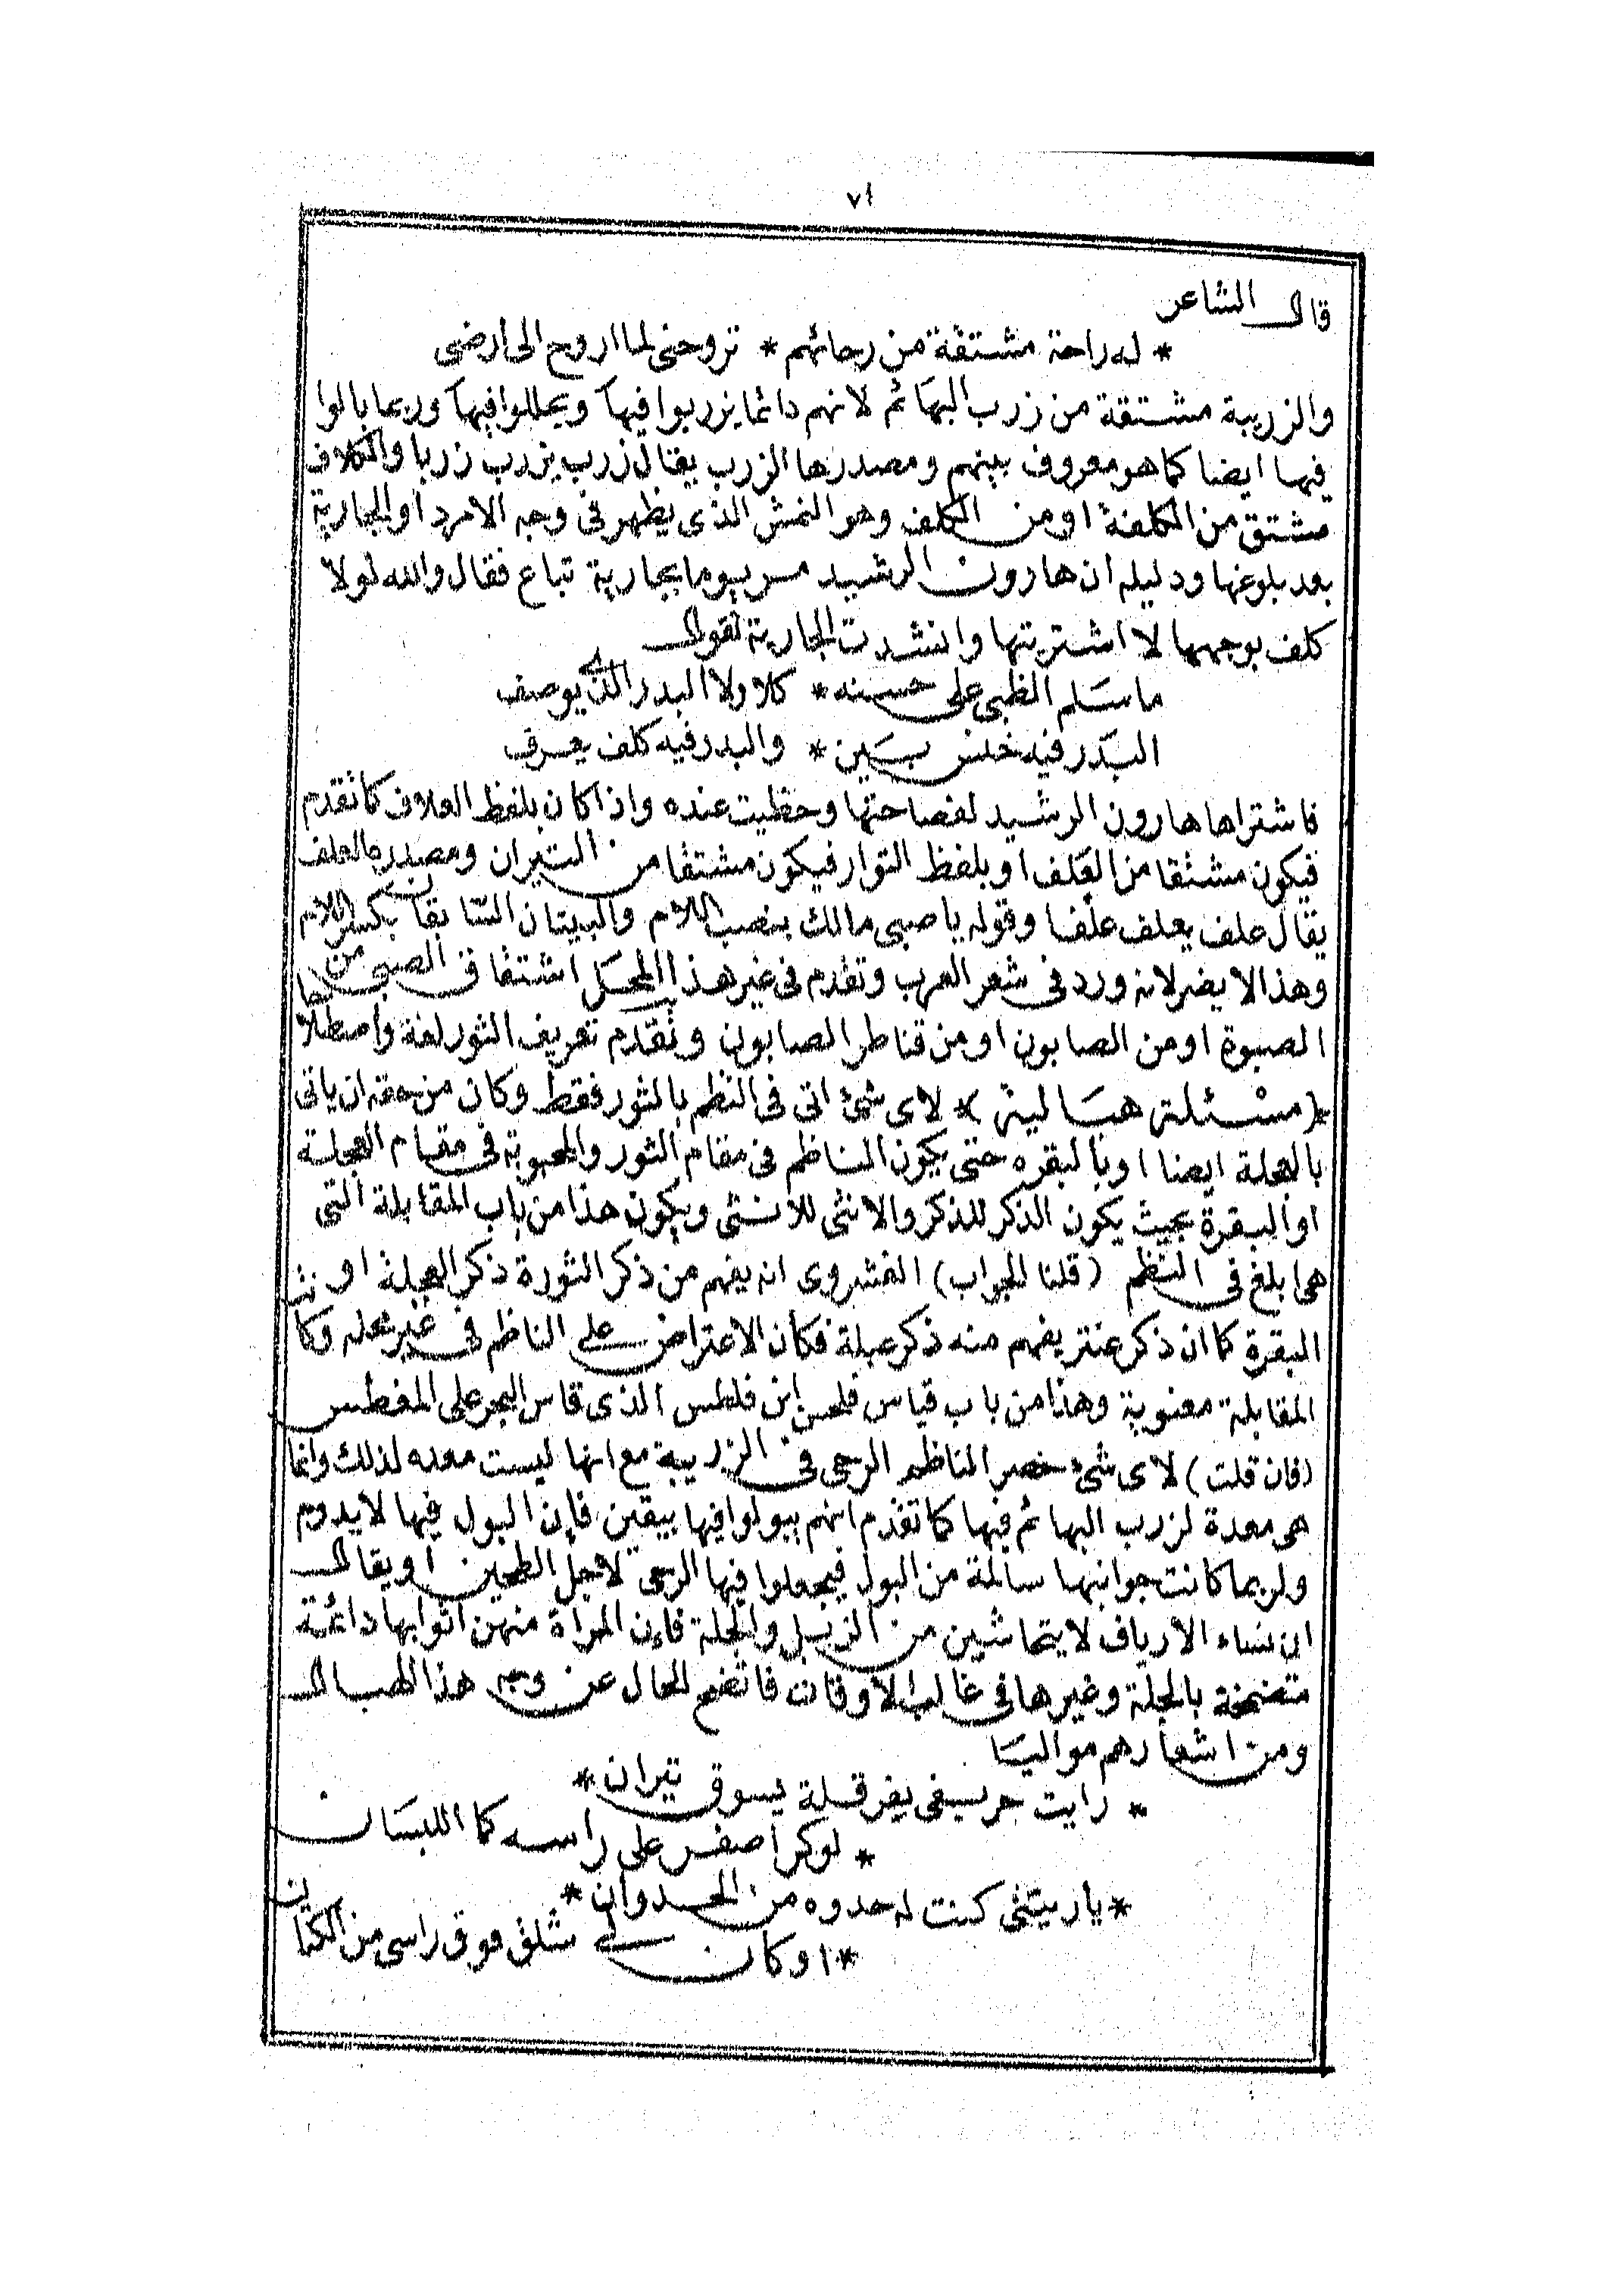 ٧٤
قال الشاعر
* له راحة مشتقة من رحائهم * تروحنى لما اروح الى أرضى
والزريبة مشتقة من زرب البهائم لانهم دائما يزربوا فيها ويجللوا فيها وربما بالوا
فيها ايضا كما هو معروف بينهم ومصدرها الزرب يقال زرب يزرب زربا والكلاف
مشتق من الكلفة او من الكلف وهو النمش الذى يظهر فى وجه الامرد او الجارية
بعد بلوغها ودليله ان هارون الرشيد مر يوما بجارية تباع فقال والله لولا
كلف بوجهها لا اشتريتها وانشدت الجارية تقول
ما سلم الظبى على حسنه * كلا ولا البدر الذى يوصف
البدر فيه خنس بين * والبدر فيه كلف يعرف
فاشتراها هارون الرشيد لفصاحتها وحظيت عنده واذا كان بلفظ العلاف كما تقدم
فيكون مشتقا من العلف او بلفظ التوار فيكون مشتقا من التيران ومصدره العلف
يقال علف يعلف علفا وقوله يا صبى مالك بنصب اللام والبيتان السابقان بكسر اللام
وهذا لا يضر لانه ورد فى شعر العرب وتقدم فى غير هذا المحل اشتقاق الصبى من
الصبوة او من الصابون او من قناطر الصابون وتقدم تعريف الثور لغة واصطلاحا
* (مسئلة هبالية) * لاى شئ اتى فى النظم بالثور فقط وكان من حقه ان ياتى
بالعجلة ايضا او بالبقره حتى يكون الناظم فى مقام الثور والمحبوبة فى مقام العجلة
او البقرة بحيث يكون الذكر للذكر والانثى للانثى ويكون هذا من باب المقابلة التى
هى ابلغ فى النظم (قلنا الجواب) الفشروى انه يفهم من ذكر الثورة ذكر العجلة او
البقرة كما ان ذكر عنتر يفهم منه ذكر عبلة فكان الاعتراض على الناظم فى غير محله وكانت
المقابلة معنوية وهذا من باب قياس فلحس ابن فلطس الذى قاس البحر على المغطس
(فان قلت) لاى شئ خصر الناظم الرحى فى الزريبة مع انها ليست معده لذلك وانما
هى معدة لزرب البهائم فيها كما تقدم انهم يبولوا فيها بيقين فإن البول فيها لا يدوم
ولربما كانت جوانبها سالمة من البول فيجعلوا فيها الرحى لاجل الطحين او يقال
ان نساء الارياف لا يتحاشين من الزبل والجلة فإن المراة منهن اثوابها دائمة
متضمخة بالجلة وغيرها فى غالب الأوقات فاتضح الحال عن وجه هذا الهبال
ومن اشعارهم مواليا
* رايت حريفى بفرقلة يسوق تيران *
* لو كر اصفر على راسه كما اللبسان
* ياريتنى كنت له حدوه من الحدوان *
* او كان لى شلق فوق راسى من الكتان